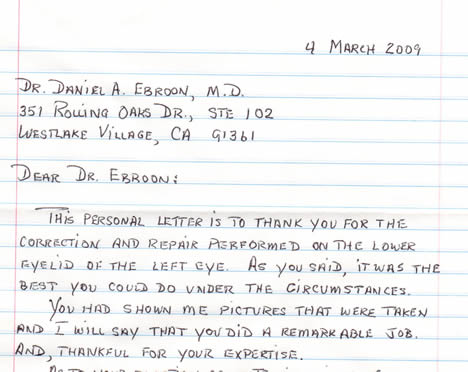 4 March 2009
Dr. Daniel A. Ebroon, M.D.
351 Rolling Oaks Dr., Ste 102
Westlake Village, CA 91361
Dear Dr. Ebroon:
This personal letter is to thank you for the
correction and repair performed on the lower
eyelid of the left eye. As you said, it was the
best you could do under the circumstances.
You had shown me pictures that were taken
and I will say that you did a remarkable job.
And, thankful for your expertise.